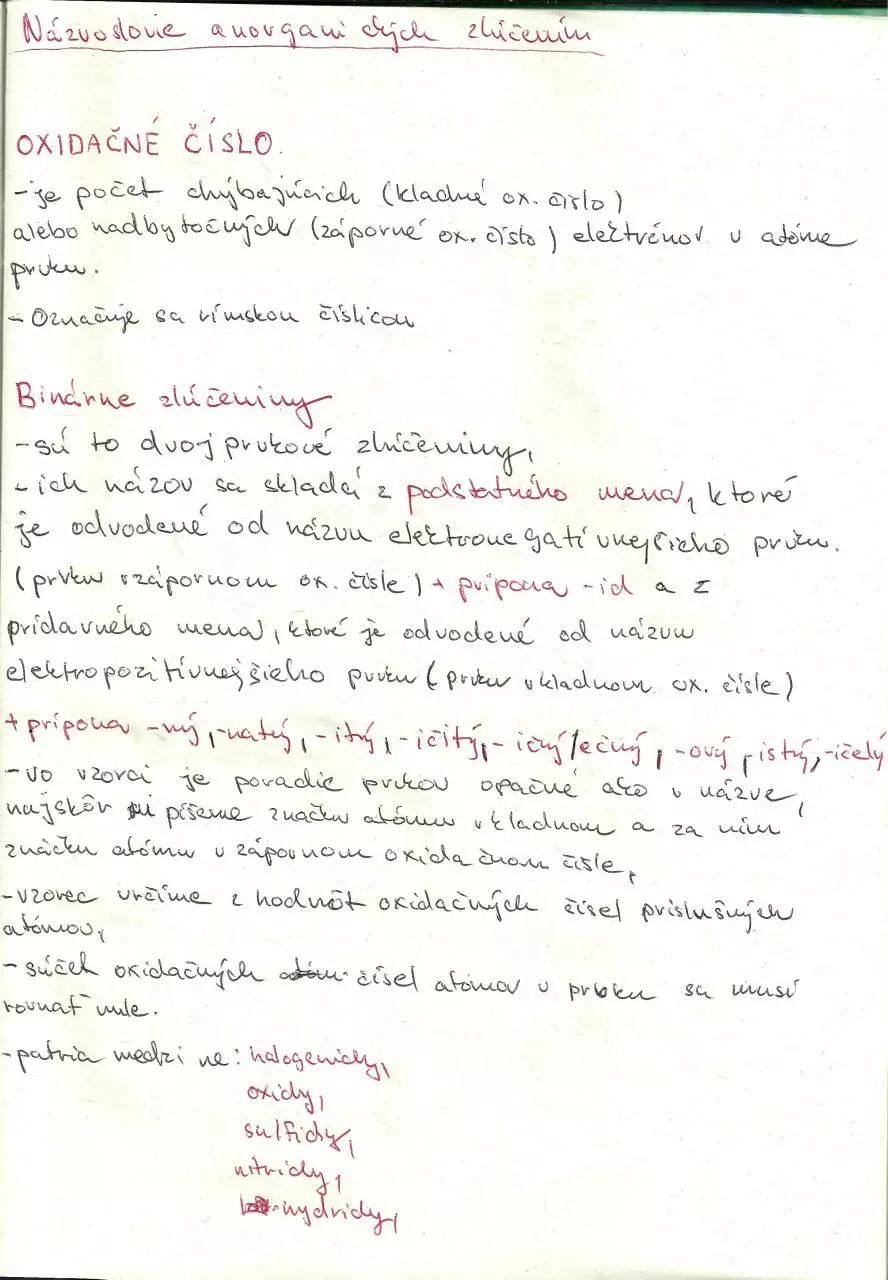 Názvoslovie anorganických zlúčenín
OXIDAČNÉ ČÍSLO.
- je počet chýbajúcich (kladné ox. číslo)
alebo nadbytočných (záporné ox. číslo) elektrónov v atóme
prvku.
- Označuje sa rímskou číslicou
Binárne zlúčeniny
- sú to dvojprvkové zlúčeniny,
- ich názov sa skladá z podstatného mena, ktoré
je odvodené od názvu elektronegatívnejšieho prvku.
(prvku v zápornom ox. čísle) + prípona -id a z
prídavného mena, ktoré je odvodené od názvu
elektropozitívnejšieho prvku (prvku v kladnom ox. čísle)
+ prípona -ný, -natý, -itý, -ičitý, -ičný/ečný, -ový, istý, -ičelý
- vo vzorci je poradie prvkov opačné ako v názve,
najskôr píšeme značku atómu v kladnom a za ním
značku atómu v zápornom oxidačnom čísle,
- vzorec určíme z hodnôt oxidačných čísel príslušných
atómov,
- súčet oxidačných čísel atómov v prvku sa musí
rovnať nule.
- patria medzi ne: halogenidy,
oxidy,
sulfidy,
nitridy,
hydridy,